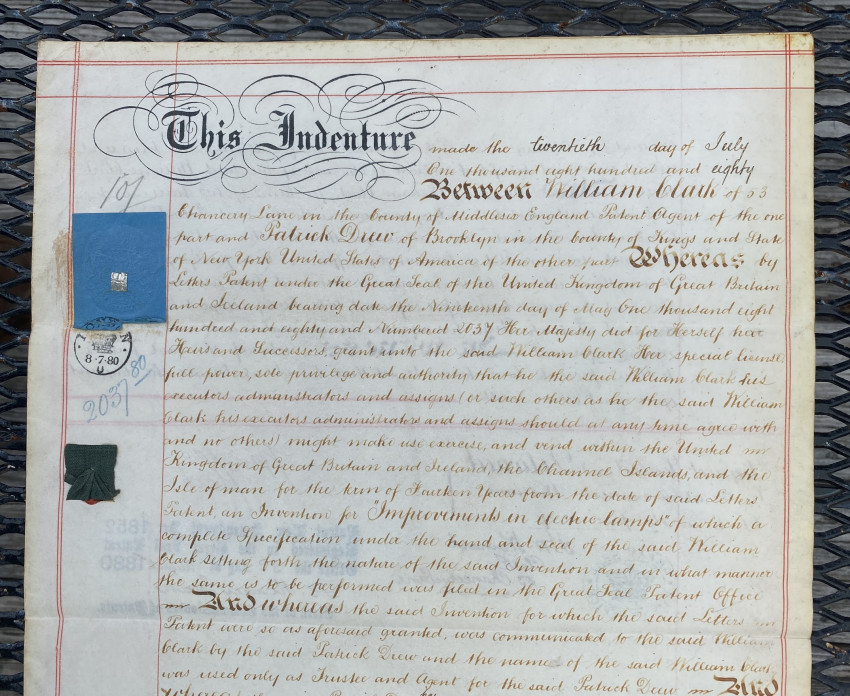 This Indenture made the twentieth day of July
One thousand eight hundred and eighty
Between William Clark of 53
Chancery Lane in the County of Middlesex England Patent Agent of the one
part and Patrick Drew of Brooklyn in the County of Kings and State
of New York United States of America of the other part Whereas by
Letters Patent under the Great Seal of the United Kingdom of Great Britain
and Ireland bearing date the Nineteenth day of May One thousand eight
hundred and eighty and Numbered 2037 Her Majesty did for Herself her
Heirs and Successors, grant unto the said William Clark Her special license
full power, sole privilege and authority that he the said William Clark his
executors administrators and assigns (or such others as he the said William
Clark his executors administrators and assigns should at any time agree with
and no others) might make use exercise, and vend within the United
Kingdom of Great Britain and Ireland, the Channel Islands, and the
Isle of man for the term of Fourteen Years from the date of said Letters
Patent, an Invention for "Improvements in electric lamps" of which a
complete Specification under the hand and seal of the said William
Clark setting forth the nature of the said Invention and in what manner
the same is to be performed was filed in the Great Seal Patent Office
And whereas the said Invention for which the said Letters
Patent were so as aforesaid granted, was communicated to the said William
Clark by the said Patrick Drew and the name of the said William Clark
was used only as Trustee and Agent for the said Patrick Drew And
whereas
10/
8·7·80
2037 80
1852
1880